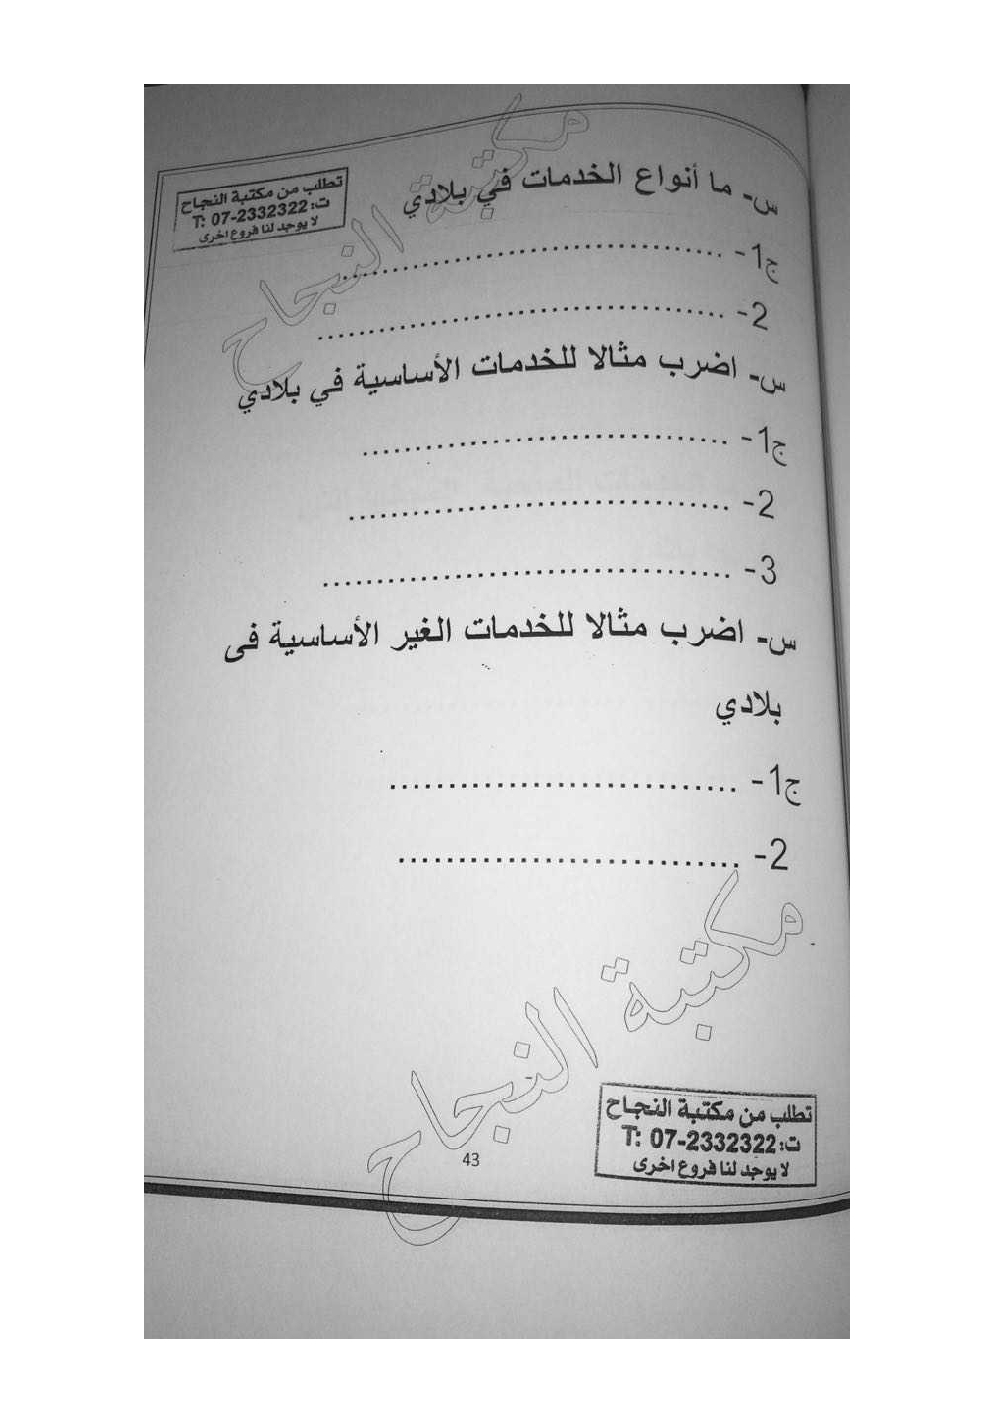 مكتبة النجاح
تطلب من مكتبة النجاح
ت: 2332322-07 :T
لا يوجد لنا فروع اخرى
س- ما أنواع الخدمات في بلادي
ج1- ....................................
2- ....................................
س- اضرب مثالا للخدمات الأساسية في بلادي
ج1- ....................................
2- ....................................
3- ....................................
س- اضرب مثالا للخدمات الغير الأساسية فى
بلادي
ج1- ...............................
2- ...............................
مكتبة النجاح
تطلب من مكتبة النجاح
ت: 2332322-07 :T
لا يوجد لنا فروع اخرى
43